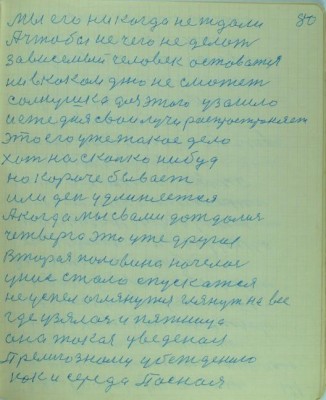 80
мы его никогда не ждали
А чтобы не чего не делат
зависемый человек оставатся
ни в каком дно не сможет
солнушка для этого взашло
и еже дня свои лучи распространяет
это его уже такое дело
хот на сколко нибуд
но короче бывает
или ден удлиняется
А когда мы с вами дождалис
четверга это уже другая
вторая половина
уние стала опускатся
не успел оглянутся глянут на все
где узялас и пятница
она такая уведеная
Прелигозному убеждению
как и середа Посная